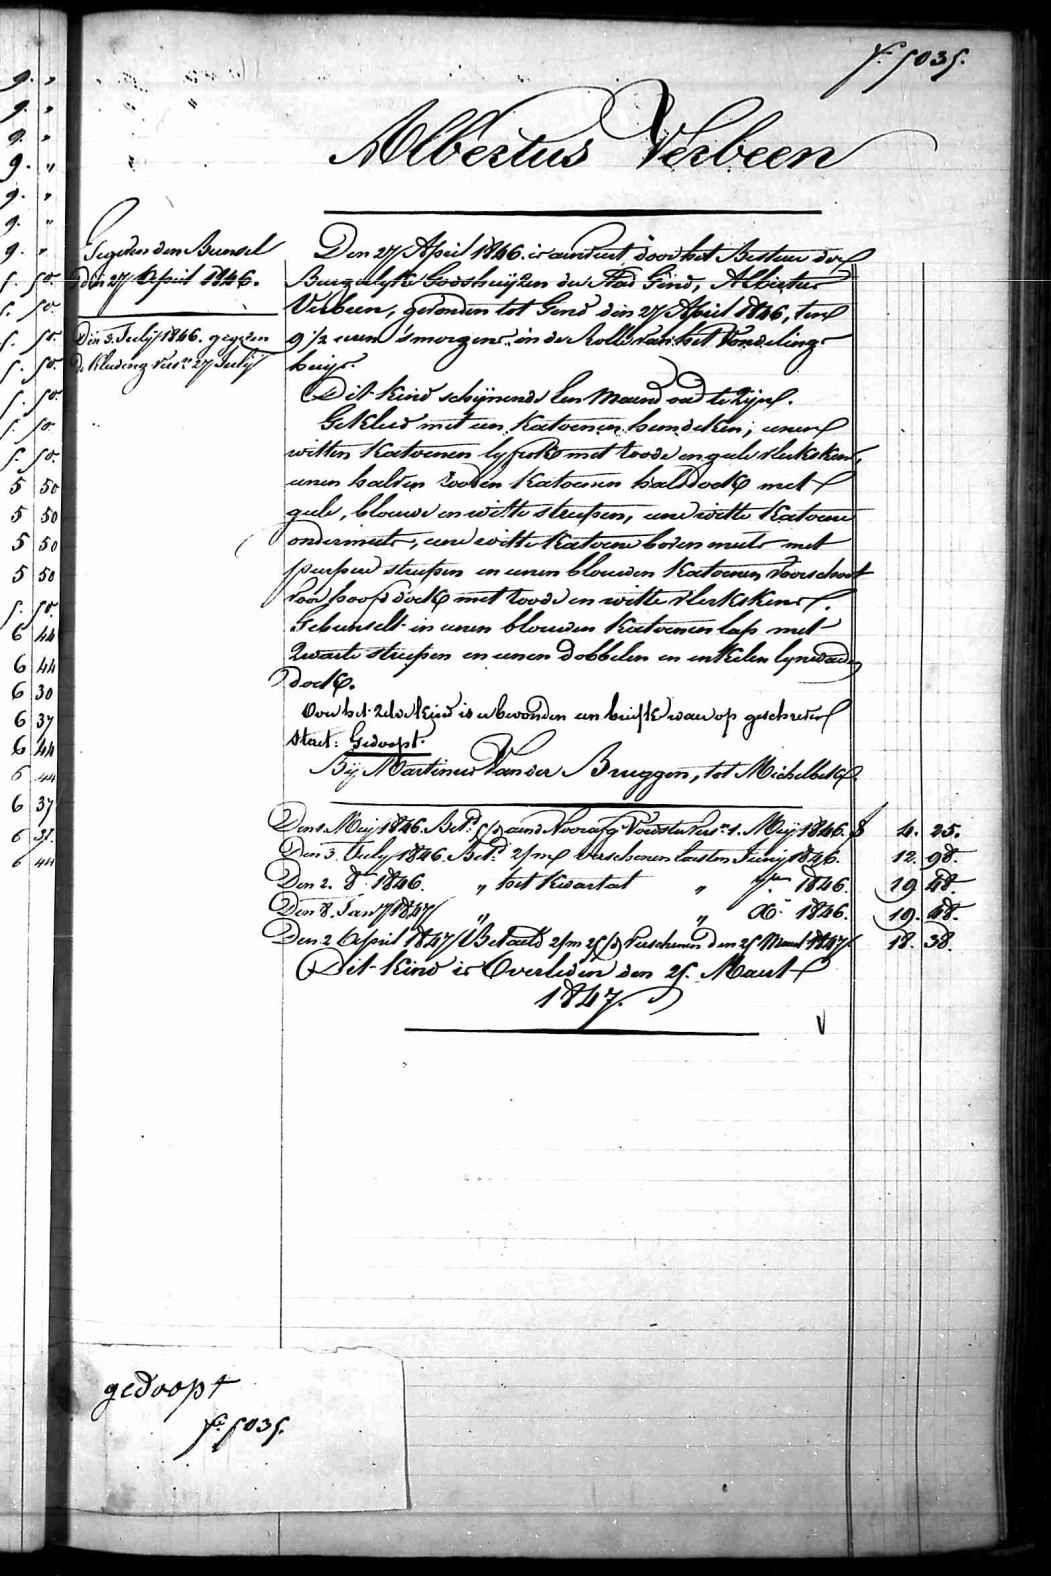 f. 5035.
Albertus Verbeen
Gegeven den Bunsel
den 27 April 1846.
Den 3. July 1846. gegeven
de kleding vers. 27 July
Den 27 April 1846. is aenveert door het Bestuer der
Burgelyke Godshuijzen der Stad Gend, Albertus
Verbeen, gevonden tot Gend den 27 April 1846, ten
9 1/2 uren 's morgens. in de Rolle van het Vondelings
huijs.
Dit kind schijnende een Maend oud te zijn.
Gekleed met een Katoenen hemdeken; eenen
witten Katoenen lyfrok met roode en geele vlekskens,
eenen halven rooden Katoenen halsdoek met
geele, blouwe en witte streepen, eene witte Katoene
ondermuts, eene witte Katoene bovenmuts met
purpere streepen en eenen blouwen Katoenen Voorschoot
voor hoofddoek met roode en witte vlekskens.
Gebunselt in eenen blouwen Katoenen lap met
zwarte streepen en eenen dobbelen en enkelen lynwaden
doek.
Over het zelve kind is er bevonden een briefke waer op geschreven
staet: Gedoopt.
Bij Martinus Van der Bruggen, tot Michelbeke.
Den 1. Meij 1846. Bet.d 5/d aend Voorafg. Voedster vers. 1. Meij 1846. 4. 25.
Den 3. July 1846. Bet.d 2/m verschenen lasten Junij 1846. 12. 98.
Den 2. 8. 1846. " het kwartael " 7. 1846. 19 48.
Den 8. Jan. 1847 " " X. 1846. 19. 48.
Den 2 April 1847 Betaeld 2/m 25/d verschenen den 25 Maert 1847 18. 38.
Dit kind is Overleden den 25. Maert
1847.
V
gedoopt
f. 5035.